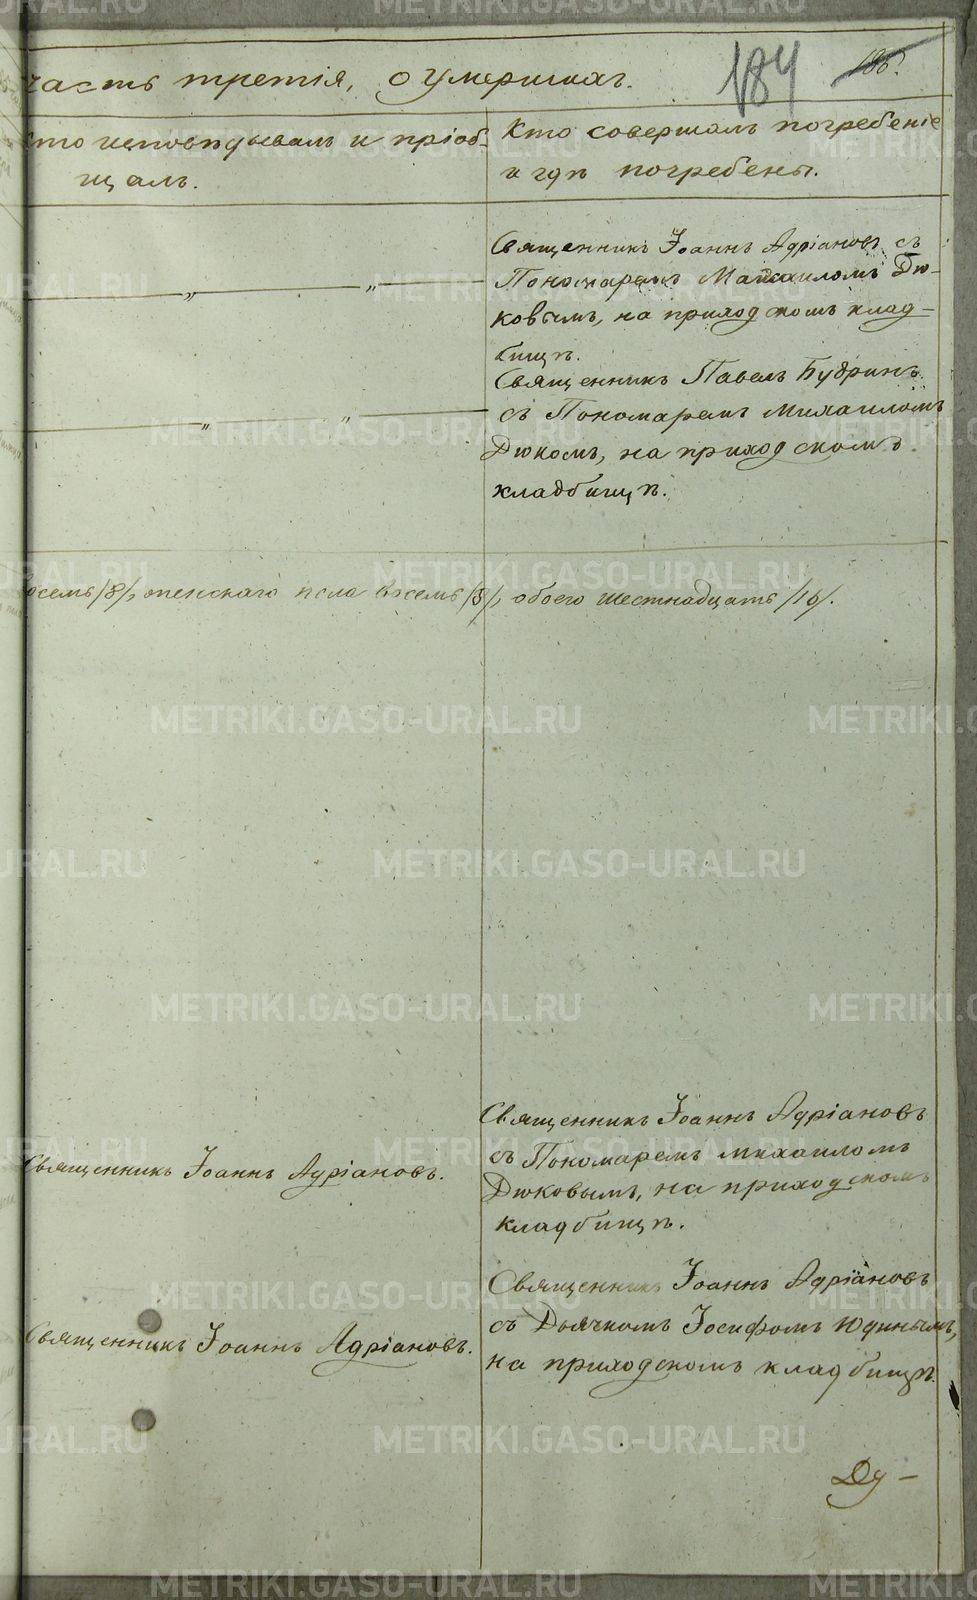 часть третія, о умершихъ.
184
185.
Кто исповѣдывалъ и пріоб-
щалъ.
Кто совершалъ погребеніе
и гдѣ погребены.
Священникъ Іоаннъ Адріановъ съ
Пономаремъ Михаиломъ Дю-
ковымъ, на приходскомъ клад-
бищѣ.
„ „
Священникъ Павелъ Будринъ
съ Пономаремъ Михаиломъ
Дюкомъ, на приходскомъ
кладбищѣ.
„ „
осемь /8/, женскаго пола восемь /8/, обоего шестнадцать /16/.
Священникъ Іоаннъ Адріановъ.
Священникъ Іоаннъ Адріановъ
съ Пономаремъ Михаиломъ
Дюковымъ, на приходскомъ
кладбищѣ.
Священникъ Іоаннъ Адріановъ.
Священникъ Іоаннъ Адріановъ
съ Дьячкомъ Іосифомъ Юдинымъ,
на приходскомъ кладбищѣ.
Ду-
METRIKI.GASO-URAL.RU